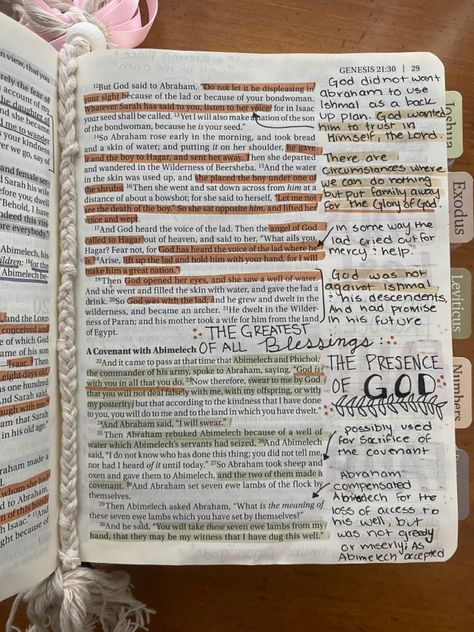 GENESIS 21:30 | 29
12But God said to Abraham, "Do not let it be displeasing in
your sight because of the lad or because of your bondwoman.
Whatever Sarah has said to you, listen to her voice; for in Isaac
your seed shall be called. 13Yet I will also make a nation of the son
of the bondwoman, because he is your seed."
14So Abraham rose early in the morning, and took bread
and a skin of water; and putting it on her shoulder, he gave
it and the boy to Hagar, and sent her away. Then she departed
and wandered in the Wilderness of Beersheba. 15And the water
in the skin was used up, and she placed the boy under one of
the shrubs. 16Then she went and sat down across from him at a
distance of about a bowshot; for she said to herself, "Let me not
see the death of the boy." So she sat opposite him, and lifted her
voice and wept.
17And God heard the voice of the lad. Then the angel of God
called to Hagar out of heaven, and said to her, "What ails you,
Hagar? Fear not, for God has heard the voice of the lad where he
is. 18Arise, lift up the lad and hold him with your hand, for I will
make him a great nation."
19Then God opened her eyes, and she saw a well of water.
And she went and filled the skin with water, and gave the lad a
drink. 20So God was with the lad; and he grew and dwelt in the
wilderness, and became an archer. 21He dwelt in the Wilder-
ness of Paran; and his mother took a wife for him from the land
of Egypt.
THE GREATEST
OF ALL Blessings:
A Covenant with Abimelech
22And it came to pass at that time that Abimelech and Phichol,
the commander of his army, spoke to Abraham, saying, "God is
with you in all that you do. 23Now therefore, swear to me by God
that you will not deal falsely with me, with my offspring, or with
my posterity; but that according to the kindness that I have done
to you, you will do to me and to the land in which you have dwelt."
24And Abraham said, "I will swear."
25Then Abraham rebuked Abimelech because of a well of
water which Abimelech's servants had seized. 26And Abimelech
said, "I do not know who has done this thing; you did not tell me,
nor had I heard of it until today." 27So Abraham took sheep and
oxen and gave them to Abimelech, and the two of them made a
covenant. 28And Abraham set seven ewe lambs of the flock by
themselves.
29Then Abimelech asked Abraham, "What is the meaning of
these seven ewe lambs which you have set by themselves?"
30And he said, "You will take these seven ewe lambs from my
hand, that they may be my witness that I have dug this well."
God did not want
abraham to use
Ishmal as a back
up plan. God wanted
him to trust in
Himself, the Lord.
There are
circumstances where
we can do nothing
but put family away
for the Glory of God.
in some way the
lad cried out for
mercy & help.
God was not
against ishmal
& his descendents,
And had promise
in his future
THE PRESENCE
OF GOD
possibly used
for sacrifice of
the covenant
Abraham
compensated
Abimelech for the
loss of access to
his well, but
was not greedy
or miserly; As
Abimelech accepted
Joshua
Exodus
Leviticus
Numbers